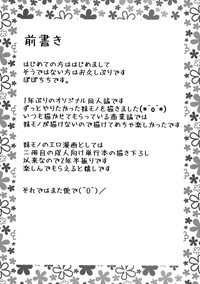 前書き
はじめての方ははじめまして
そうではない方はお久しぶりです
ぽぽちちです。
1年ぶりのオリジナル同人誌です
ずっとやりたかった妹モノを描きました(*´o`*)
いつも描かせてもらっている商業誌では
妹モノが描けないので描けてめちゃ楽しかったです
妹モノのエロ漫画としては
二冊目の成人向け単行本の描き下ろし
以来なので2年半振りです
楽しんでもらえると嬉しです
それではまた後で(^0^)/